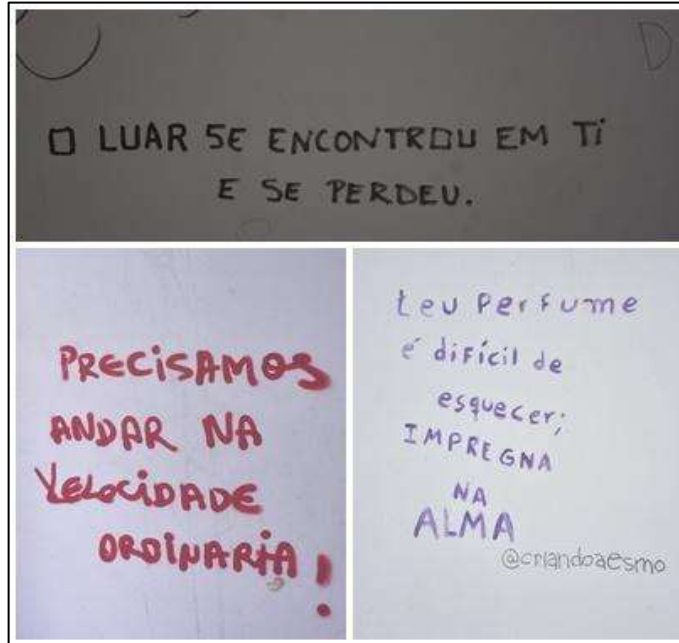 O LUAR SE ENCONTROU EM Ti
E SE PERDEU.
PRECiSAMOS
ANDAR NA
VELOCiDADE
ORDiNARiA!
teu Perfume
é difícil de
esquecer;
IMPREGNA
NA
ALMA
@criandoaesmo